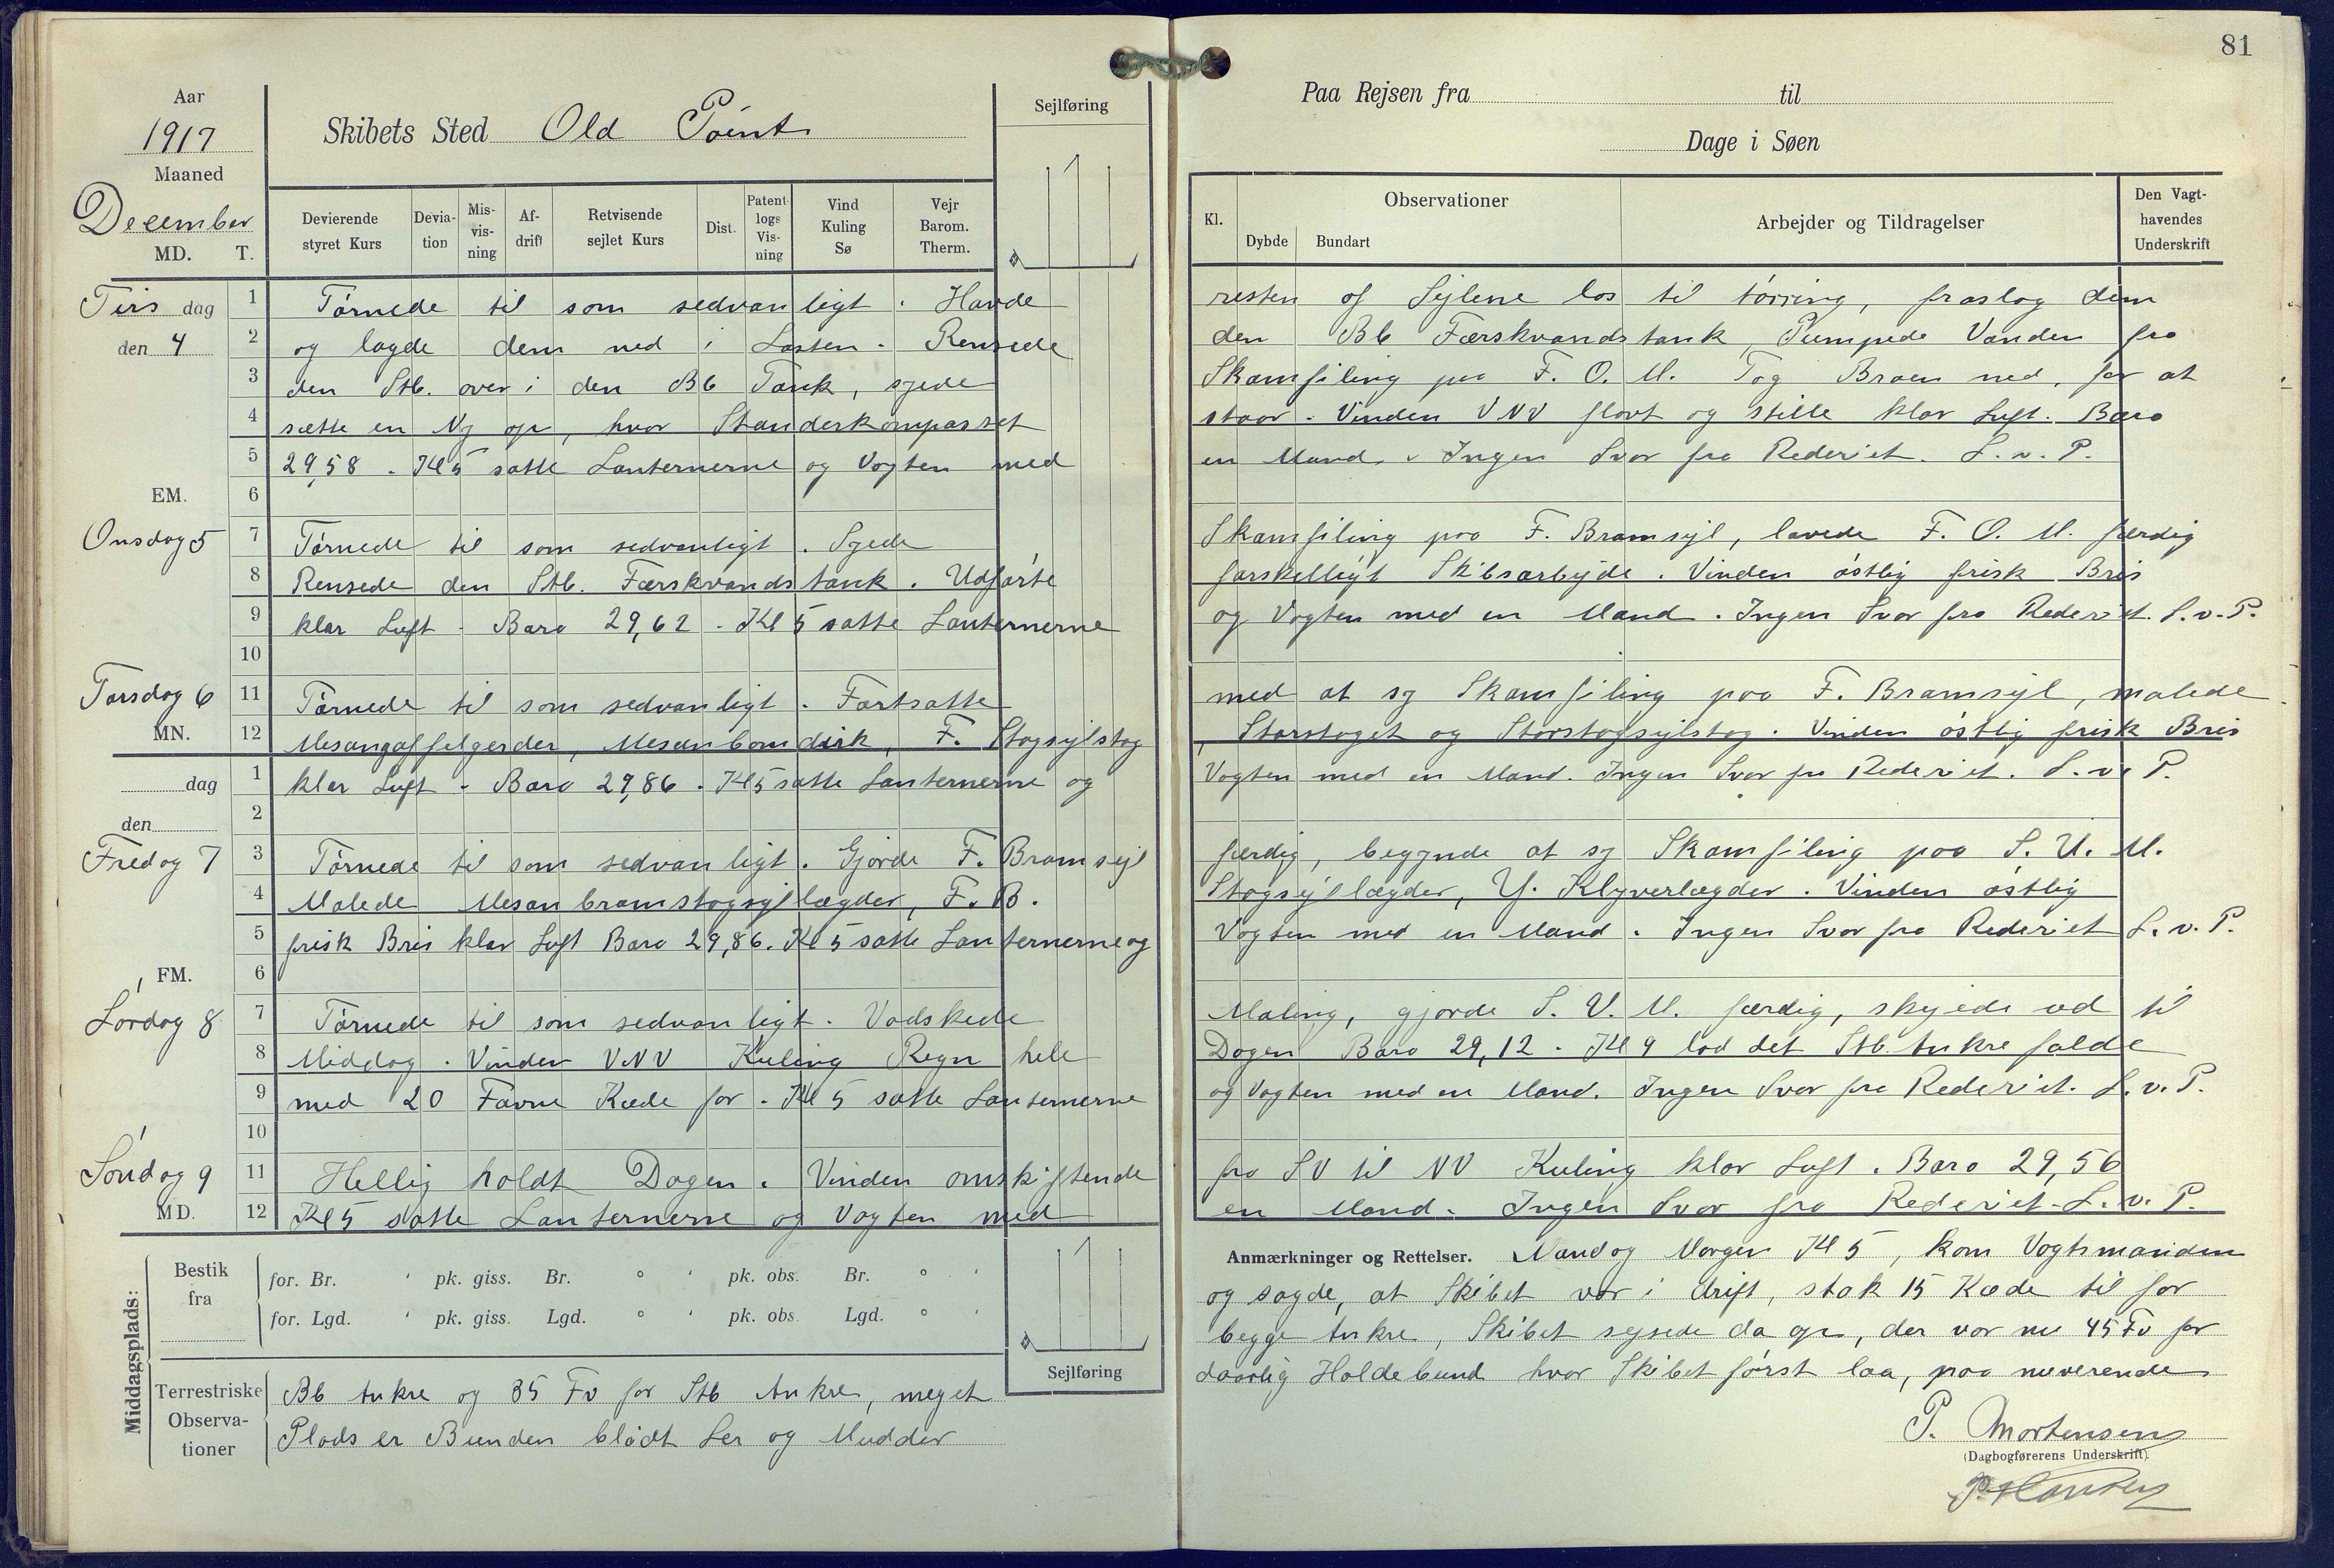 81
Aar
1917
Maaned
December
MD. T.
Skibets Sted Old Point
Sejlføring
Paa Rejsen fra til
Dage i Søen
Devierende styret Kurs
Devia-tion
Mis-vis-ning
Af-drift
Retvisende sejlet Kurs
Dist.
Patent-logs Vis-ning
Vind Kuling Sø
Vejr Barom. Therm.
Kl.
Observationer
Dybde Bundart
Arbejder og Tildragelser
Den Vagt-havendes Underskrift
Tirs dag 1 Tørnede til som sedvanligt. Havde resten af Sejlene los til tørring, fraslog dem
den 4 2 og lagde dem ned i Lasten. Rensede den Bb Færskvandstank, Pumpede Vanden fra
3 den Stb. over i den Bb Tank, syede Skamfiling paa F. O. M. Tog Broen ned, for at
4 sætte en Ny op, hvor Standerkompasset staar. Vinden VNV flovt og stille klar Luft. Baro
5 29,58. Kl 5 satte Lanternerne og Vagten med en Mand. Ingen Svar fra Rederiet. L.v.P.
EM. 6
Onsdag 5 7 Tørnede til som sedvanligt. Syede Skamfiling paa F. Bramsejl, lavede F. O. M. færdig
8 Rensede den Stb. Færskvandstank. Udførte forskelligt Skibsarbejde. Vinden østlig frisk Bris
9 klar Luft. Baro 29,62. Kl 5 satte Lanternerne og Vagten med en Mand. Ingen Svar fra Rederiet. L.v.P.
10
Torsdag 6 11 Tørnede til som sedvanligt. Fortsatte med at sy Skamfiling paa F. Bramsejl, malede
MN. 12 Mesangaffelgerder, Mesanbomdirk, F. Stagsejlstag, Storstaget og Storstagsejlstag. Vinden østlig frisk Bris
dag 1 klar Luft. Baro 29,86. Kl 5 satte Lanternerne og Vagten med en Mand. Ingen Svar fra Rederiet. L.v.P.
den 2
Fredag 7 3 Tørnede til som sedvanligt. Gjorde F. Bramsejl færdig, begynde at sy Skamfiling paa S. U. M.
4 Malede Mesanbramstagsejllægder, F. B. Stagsejllægder, Y. Klyverlægder. Vinden østlig
5 frisk Bris klar Luft Baro 29,86. Kl 5 satte Lanternerne og Vagten med en Mand. Ingen Svar fra Rederiet L.v.P.
FM. 6
Lørdag 8 7 Tørnede til som sedvanligt. Vadskede Maling, gjorde S. U. M. færdig, skyede ud til
8 Middag. Vinden VNV Kuling Regn hele Dagen Baro 29,12. Kl 9 lod det Stb. Ankre falde
9 med 20 Favne Kæde for. Kl 5 satte Lanternerne og Vagten med en Mand. Ingen Svar fra Rederiet. L.v.P.
10
Søndag 9 11 Hellig holdt Dagen. Vinden omskiftende fra SV til NV Kuling klar Luft. Baro 29,56
MD. 12 Kl 5 satte Lanternerne og Vagten med en Mand. Ingen Svar fra Rederiet. L.v.P.
Middagsplads:
Bestik fra
for. Br. ' pk. giss. Br. ° ' pk. obs. Br. ° '
for. Lgd. ' pk. giss. Lgd. ° ' pk. obs. Lgd. ° '
Sejlføring
Anmærkninger og Rettelser. Mandag Morgen Kl 5, kom Vagtsmanden
og sagde, at Skibet var i drift, stak 15 Kæde til for
begge Ankre, Skibet sejsede da op, der var nu 45 Fv for
Terrestriske Observa-tioner
Bb Ankre og 35 Fv for Stb Ankre, meget
daarlig Holdebund hvor Skibet først laa, paa nuverende
Plads er Bunden blødt Ler og Mudder
P. Mortensen
(Dagbogførerens Underskrift)